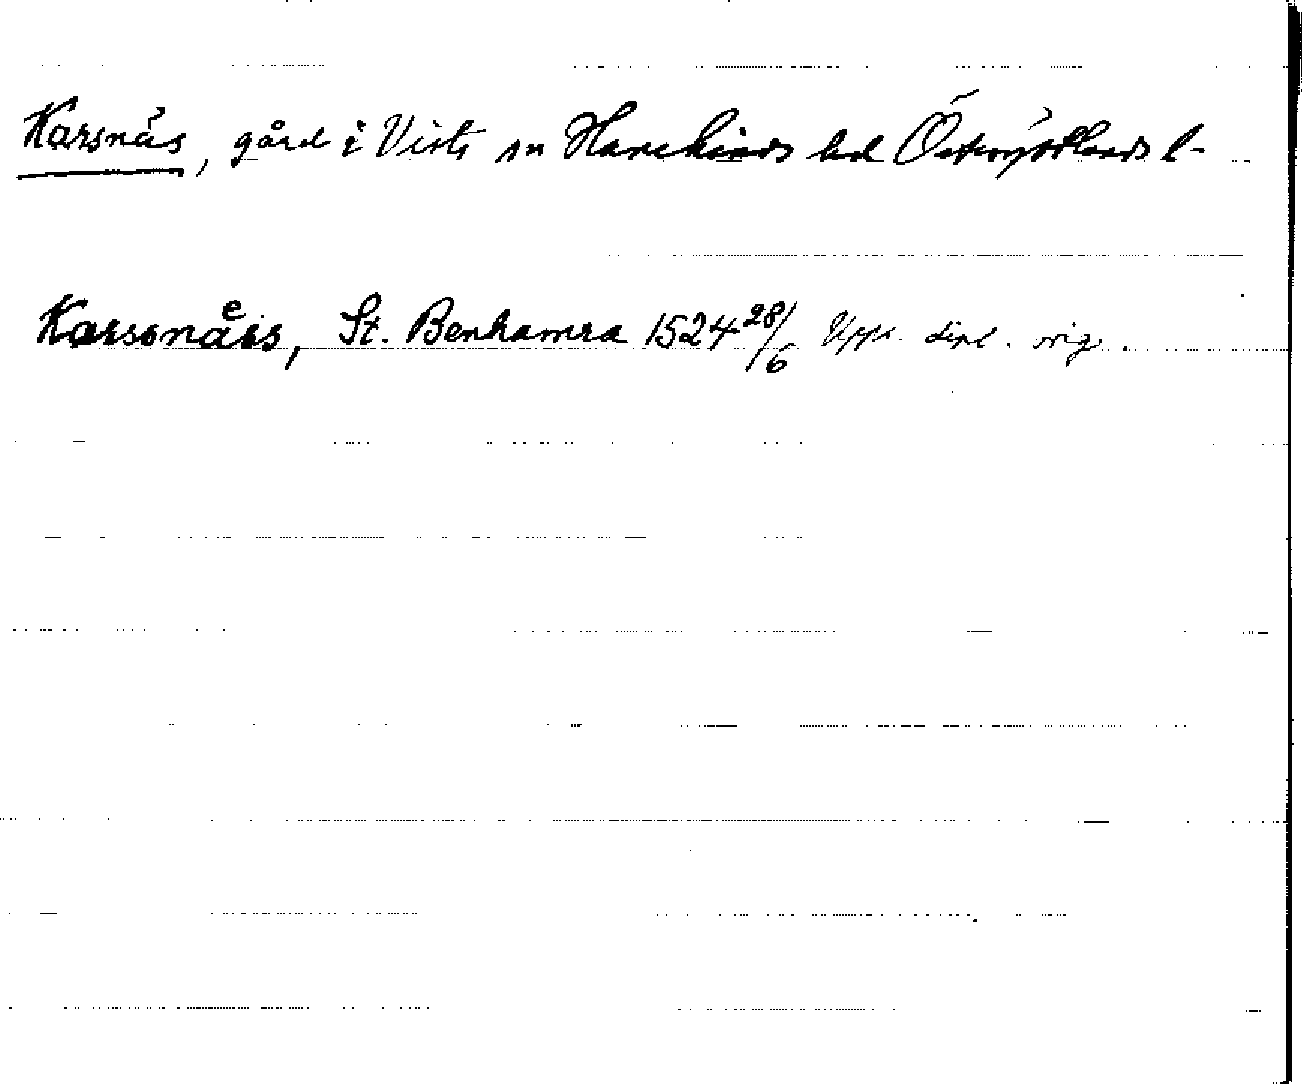 Karsnäs, gård i Vists sn Hanekinds hd Östergötlands l-
Karsonaͤis, St. Benhamra 1524 28/6 Upps. dipl. orig.